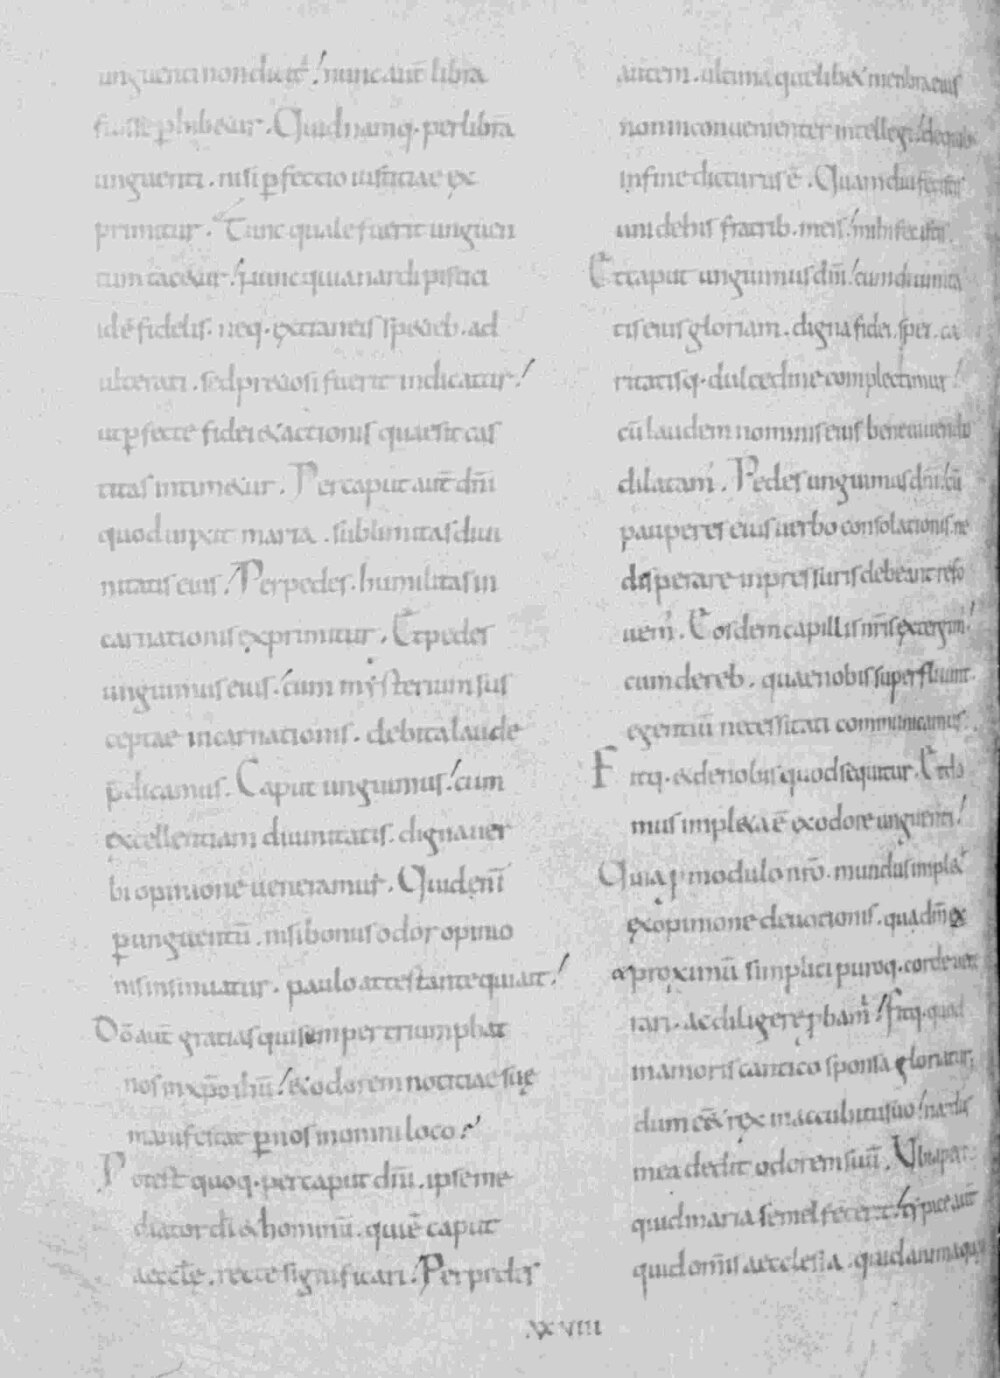 unguenti non dicit᷑! nunc aut̄ libra
fuisse ꝑhibetur. Quid namq. per librā
unguenti. nisi ꝑfectio iustitiae ex
primitur. Tunc quale fuerit unguen
tum tacetur! nunc quia nardi pistici
idē fidelis. neq. extraneis specieb. ad
ulterati. sed pretiosi fuerit indicatur!
ut ꝑfecte fidei & actionis quae sit cas
titas intimetur. Per caput aut̄ dn̄i
quod unxit maria. sublimitas diui
nitatis eius! Per pedes. humilitas in
carnationis exprimitur. Et pedes
unguimus eius. cum mysterium sus
ceptae incarnationis. debita laude
p̄dicamus. Caput unguimus! cum
excellentiam diuinitatis. digna uer
bi opinione ueneramur. Quid eni̅
ꝑ unguentū. nisi bonus odor opinio
nis insinuatur. paulo attestante qui ait!
Dō aut̄ gratias qui semper triumphat
nos in xp̄o ihū! & odorem notitiae suę
manifestat ꝑ nos in omni loco.
Potest quoq. per caput dn̄i. ipse me
diator dī & hominū. qui ē caput
aecclę. recte significari. Per pedes
autem. ultima quelibet menbra eius
non inconuenienter intellegi! de quib.
in fine dicturus ē. Quamdiu fecistis
uni de his fratrib. meis! mihi fecistis.
Et caput unguimus dn̄i! cum diuinita
tis eius gloriam. digna fidei. spei. ca
ritatisq. dulcedine complectimur!
cū laudem nominis eius bene uiuendo
dilatam᷑. Pedes unguimus dn̄i! cū
pauperes eius uerbo consolationis. ne
disperare in pressuris debeant refo
uem᷑. Eosdem capillis nr̄is extergim᷑!
cum de reb. quae nobis superfluunt.
egentiū necessitati communicamus.
Fitq. & de nobis quod sequitur. Et do
mus impleta ē ex odore unguenti!
Quia ꝓ modulo nr̄o. mundus impletur
ex opinione deuotionis. qua dm̄ &
proximū simplici puroq. corde uene
rari. ac diligere ꝓbam᷑! Fitq. quod
in amoris cantico sponsa gloriatur;
dum eēt rex in accubitu suo! nardus
mea dedit odorem suū. Ubi apar.
quid maria semel fecerit! typice aut̄
quid om̄is aecclesia. quid anima quę
.XXVIII